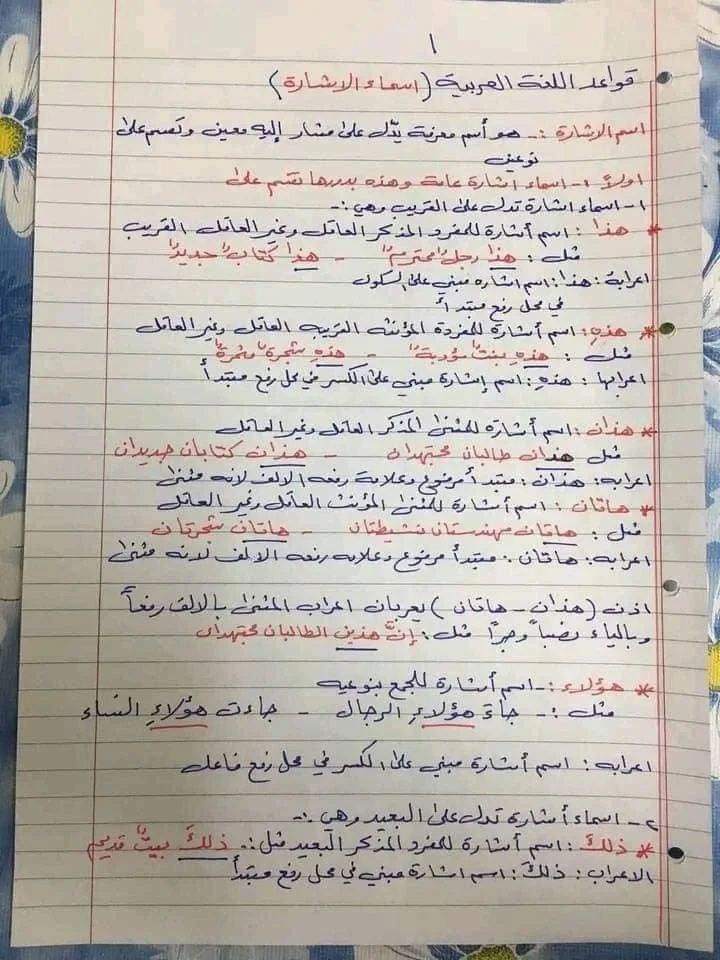 ١
قواعد اللغة العربية (اسماء الاشارة)
اسم الاشارة :- هو أسم معرفة يدّل على مشار إليه معين وتقسم على
نوعين
اولاً ١- اسماء اشارة عامة وهذه بدورها تقسم على
١- اسماء اشارة تدل على القريب وهي :-
* هذا : اسم أشارة للمفرد المذكر العاقل وغير العاقل القريب
مثل : هذا رجلٌ محترمٌ - هذا كتابٌ جديدٌ
اعرابة : هذا : اسم اشاره مبني على السكول
في محل رفع مبتدأ
* هذهِ : اسم أشارة للمفردة المؤنث القريب العاقل وغير العاقل
مثل : هذهِ بنتٌ مؤدبةٌ - هذهِ شجرةٌ مثمرةٌ
اعرابها : هذهِ : اسم إشارة مبني على الكسر في محل رفع مبتدأ
* هذان : اسم أشارة للمثنى المذكر العاقل وغير العاقل
مثل هذان طالبان مجتهدان - هذان كتابان جديدان
اعرابه : هذان : مبتدأ مرفوع وعلامة رفعه الالف لانه مثنى
* هاتان : اسم أشارة للمثنى المؤنث العاقل وغير العاقل
مثل : هاتان مهندستان نشيطتان - هاتان شجرتان
اعرابه : هاتان : مبتدأ مرفوع وعلامه رفعه الالف لانه مثنى
اذن (هذان - هاتان) يعربان اعراب المثنى بالالف رفعاً
وبالياء نصباً وجراً مثل : إنَّ هذين الطالبان مجتهدان
* هؤلاء :- اسم أشارة للجمع بنوعيه
مثل :- جاءَ هؤلاءِ الرجال - جاءت هؤلاءِ النساء
اعرابه : اسم أشارة مبني على الكسر في محل رفع فاعل
٢- اسماء أشارة تدل على البعيد وهي :-
* ذلكَ : اسم أشارة للمفرد المذكر البعيد مثل :- ذلكَ بيتٌ قديم
الاعراب : ذلكَ : اسم اشارة مبني في محل رفع مبتدأ